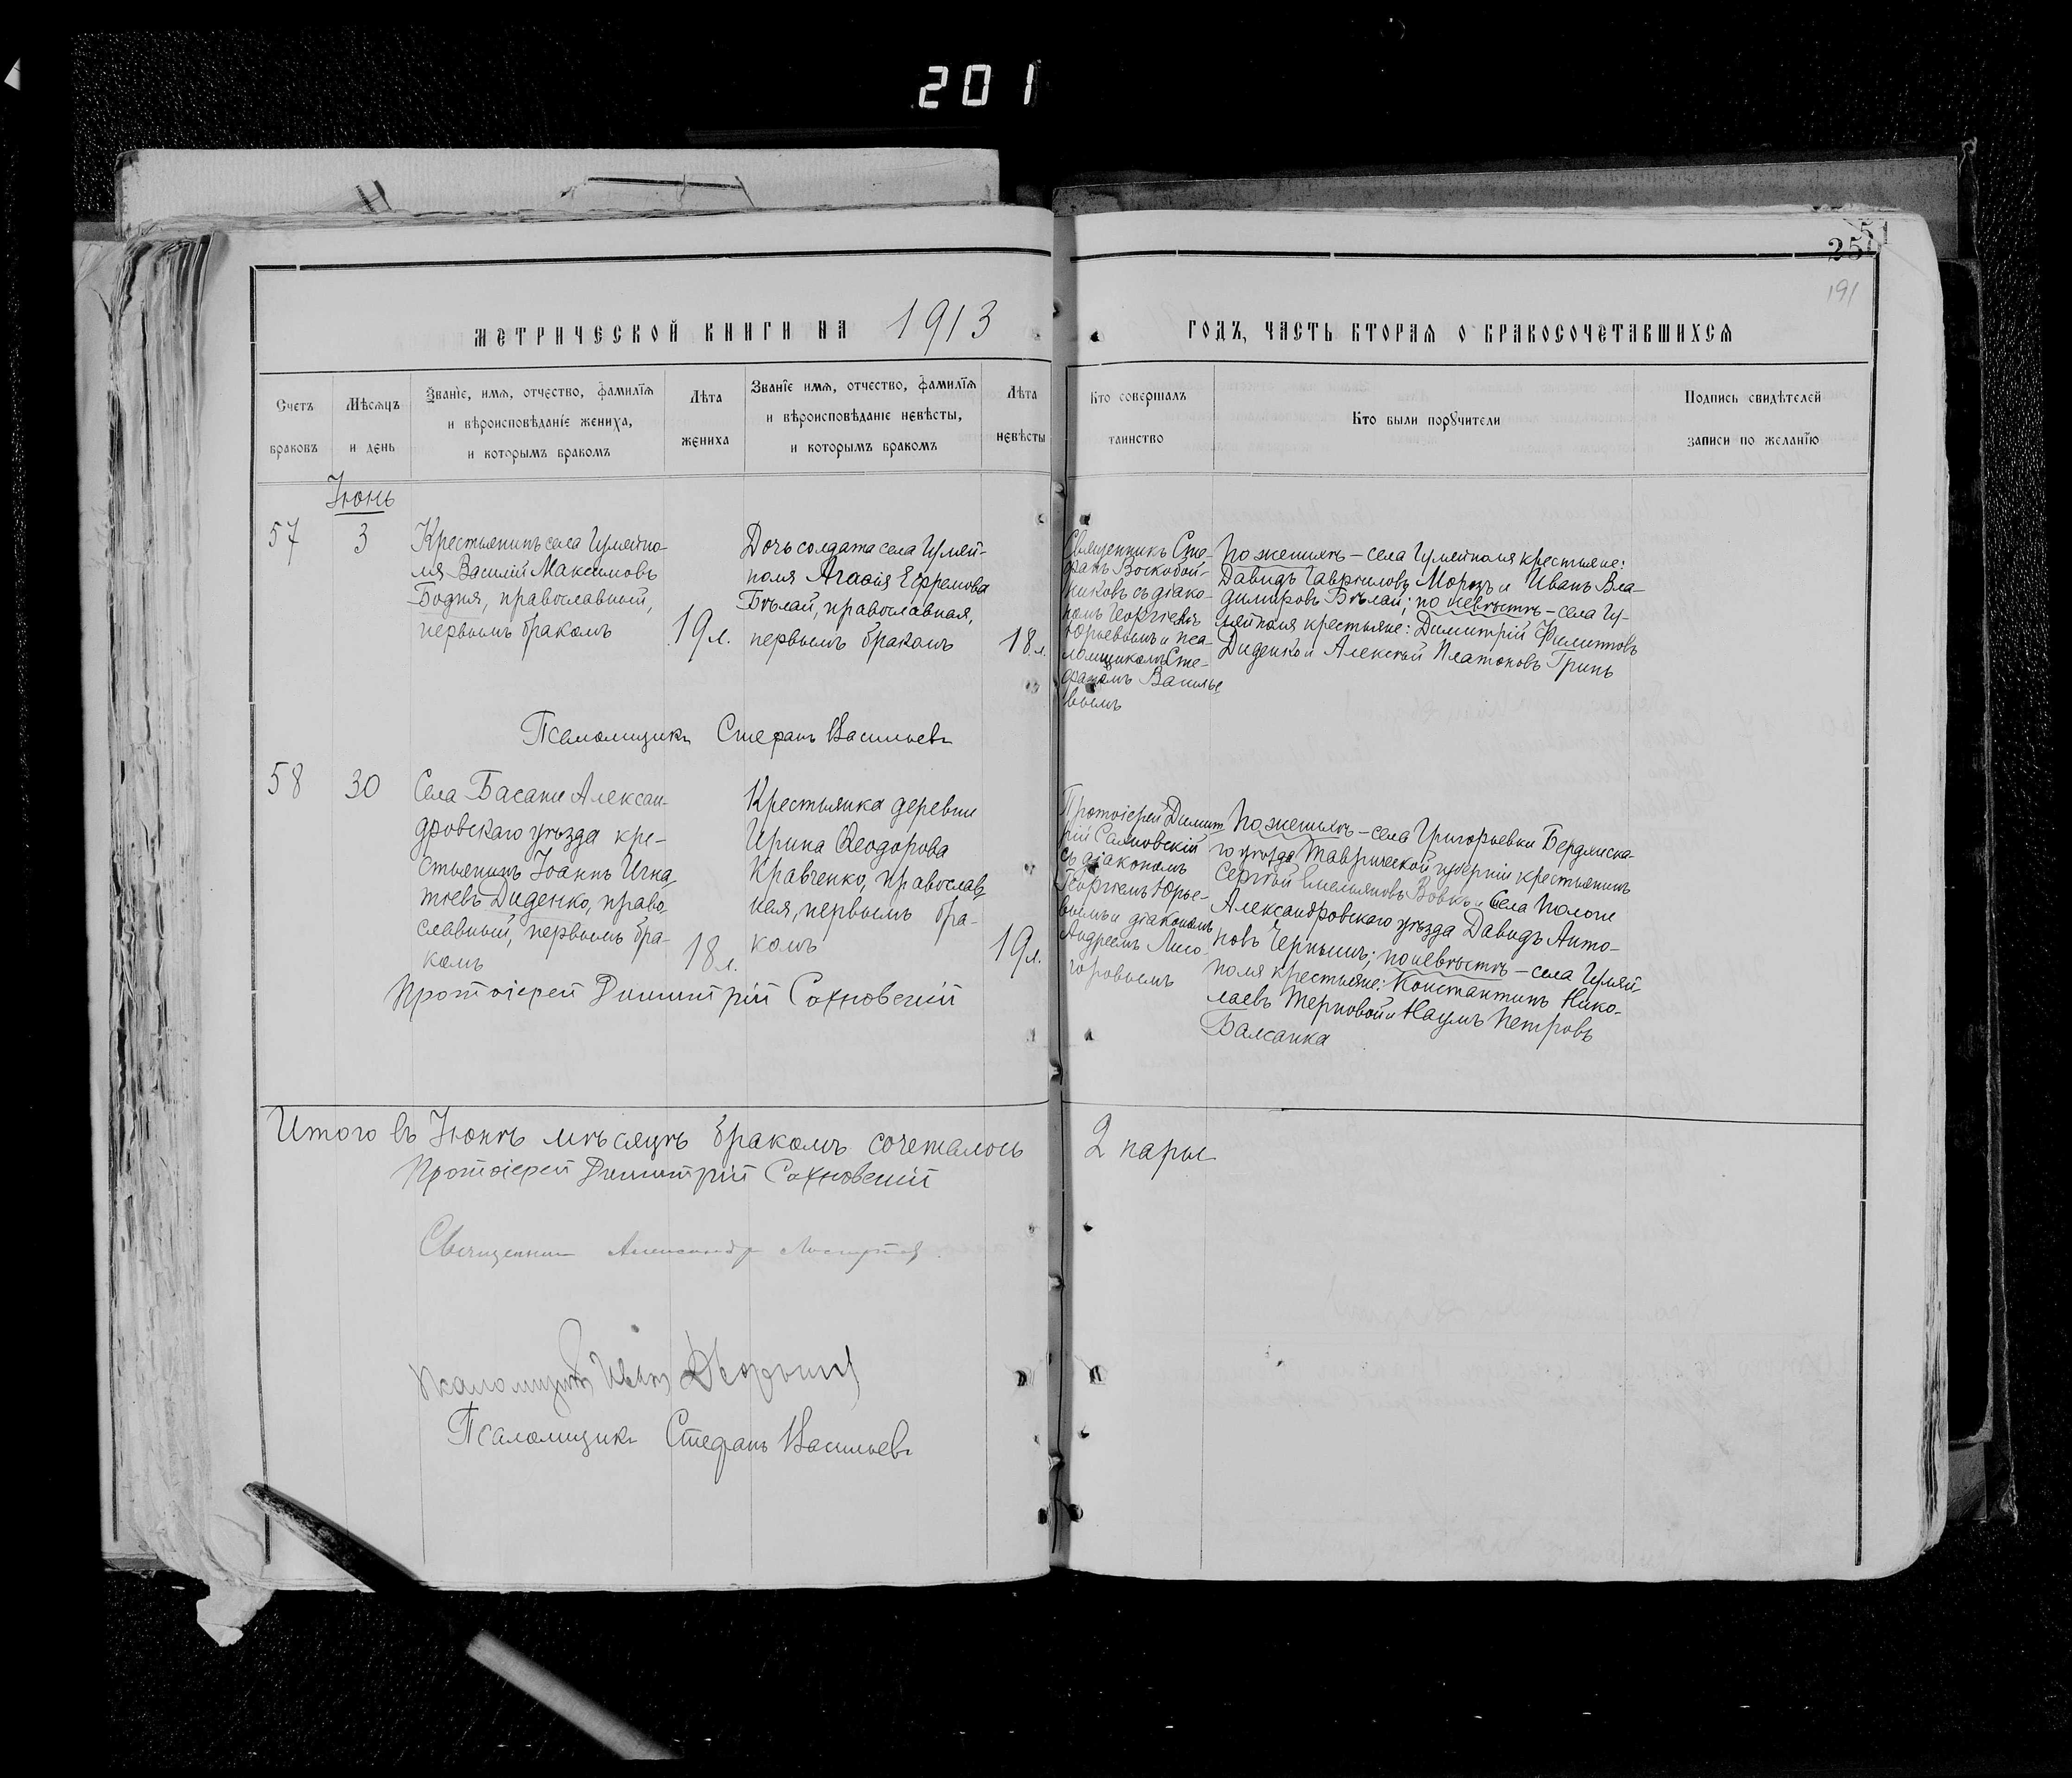 201
51
25
191
МЕТРИЧЕСКОЙ КНИГИ НА 1913
ГОДЪ, ЧАСТЬ ВТОРАЯ О БРАКОСОЧЕТАВШИХСЯ
Счетъ
браковъ
Мѣсяцъ
и день
Званіе, имя, отчество, фамилія
и вѣроисповѣданіе жениха,
и которымъ бракомъ
Лѣта
жениха
Званіе имя, отчество, фамилія
и вѣроисповѣданіе невѣсты,
и которымъ бракомъ
Лѣта
невѣсты
Кто совершалъ
таинство
Кто были поручители
Подпись свидѣтелей
записи по желанію
Іюнь
57
3
Крестьянинъ села Гуляйпо-
ля Василій Максимовъ
Бодня, православный,
первымъ бракомъ
19 л.
Дочь солдата села Гуляй-
поля Агаѳія Ефремова
Бѣлай, православная,
первымъ бракомъ
18 л.
Священникъ Сте-
фанъ Воскобой-
никовъ съ діако-
номъ Георгіемъ
Юрьевымъ и пса-
ломщикомъ Сте-
фаномъ Василье
вымъ
По женихѣ – села Гуляйполя крестьяне:
Давидъ Гавриловъ Морозъ и Иванъ Вла-
димировъ Бѣлай; по невѣстѣ – села Гу-
ляйполя крестьяне: Димитрій Филипповъ
Диденко и Алексѣй Платоновъ Гринь
Псаломщикъ Стефанъ Васильевъ
58
30
Села Басани Алексан-
дровскаго уѣзда кре-
стьянинъ Іоаннъ Игна
тіевъ Диденко, право
славный, первымъ бра-
комъ
18 л.
Крестьянка деревни
Ирина Ѳеодорова
Кравченко, православ
ная, первымъ бра-
комъ
19 л.
Протоіерей Димит
рій Сахновскій
съ діакономъ
Георгіемъ Юрье-
вымъ и діакономъ
Андреемъ Лисо
горовымъ
По женихѣ – села Григорьевки Бердянска-
го уѣзда Таврической губерніи крестьянинъ
Сергѣй Емельяновъ Вовкъ и села Пологи
Александровскаго уѣзда Давидъ Анто-
новъ Чернышъ; по невѣстѣ – села Гуляй-
поля крестьяне: Константинъ Нико-
лаевъ Терновой и Наумъ Петровъ
Балсанка
Протоіерей Димитрій Сахновскій
Итого въ Іюнѣ мѣсяцѣ бракомъ сочеталось 2 пары
Протоіерей Димитрій Сахновскій
Священникъ Александръ
Псаломщикъ
Псаломщикъ Стефанъ Васильевъ